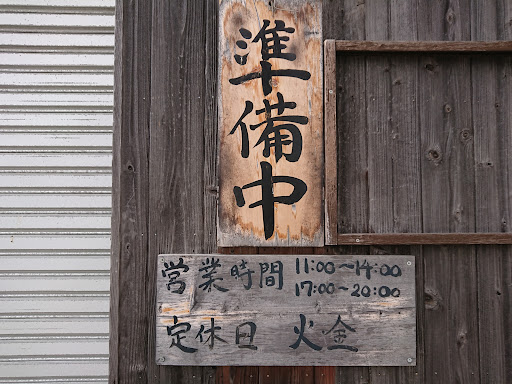 準備中
営業時間 11:00～14:00
17:00～20:00
定休日 火金